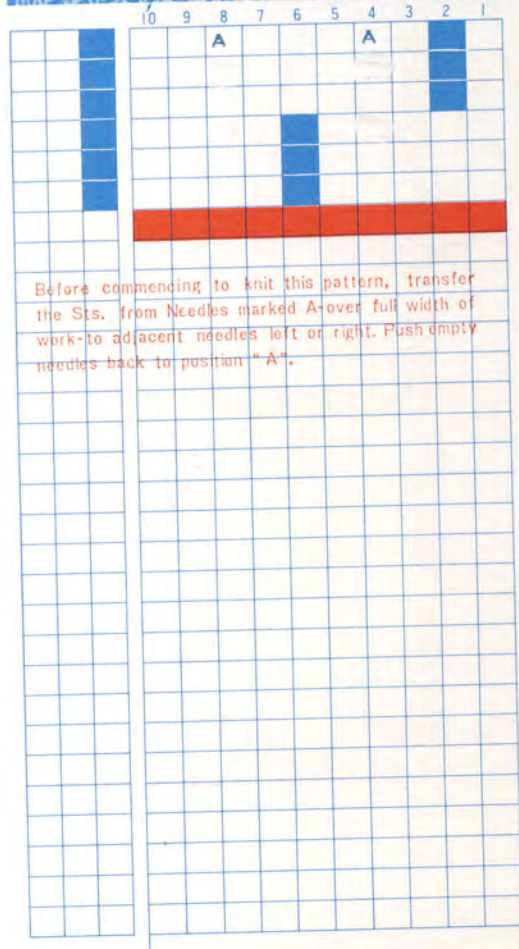 10 9 8 7 6 5 4 3 2 1
A A
Before commencing to knit this pattern, transfer
the Sts. from Needles marked A-over full width of
work-to adjacent needles left or right. Push empty
needles back to position "A".